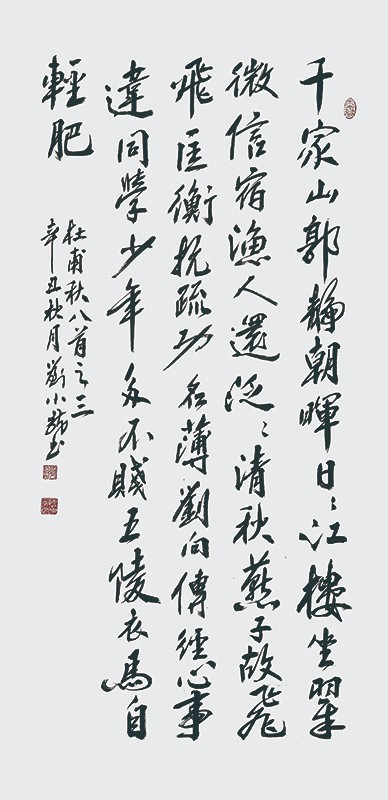 千家山郭靜朝暉日〻江樓坐翠
微信宿漁人還泛〻清秋燕子故飛
飛匡衡抗疏功名薄劉向傳經心事
違同學少年多不賤五陵衣馬自
輕肥
杜甫秋八首之三
辛丑秋月劉小書